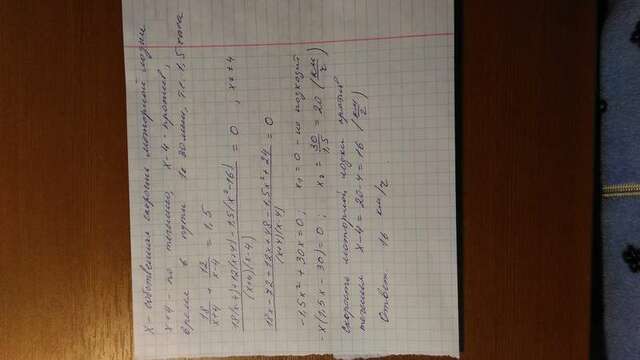 x - собственная скорость моторной лодки
x+4 - по течению, x-4 - против,
время в пути 1ч 30 мин, т.е. 1,5 часа
18/(x+4) + 12/(x-4) = 1,5
(18(x-4)+12(x+4)-1,5(x²-16))/((x+4)(x-4)) = 0 ; x≠±4
(18x-72+12x+48-1,5x²+24)/((x+4)(x-4)) = 0
-1,5x²+30x=0; x₁=0 - не подходит
-x(1,5x-30)=0; x₂ = 30/1,5 = 20 (км/ч)
скорость моторной лодки против
течения x-4=20-4=16 (км/ч)
Ответ 16 км/ч.